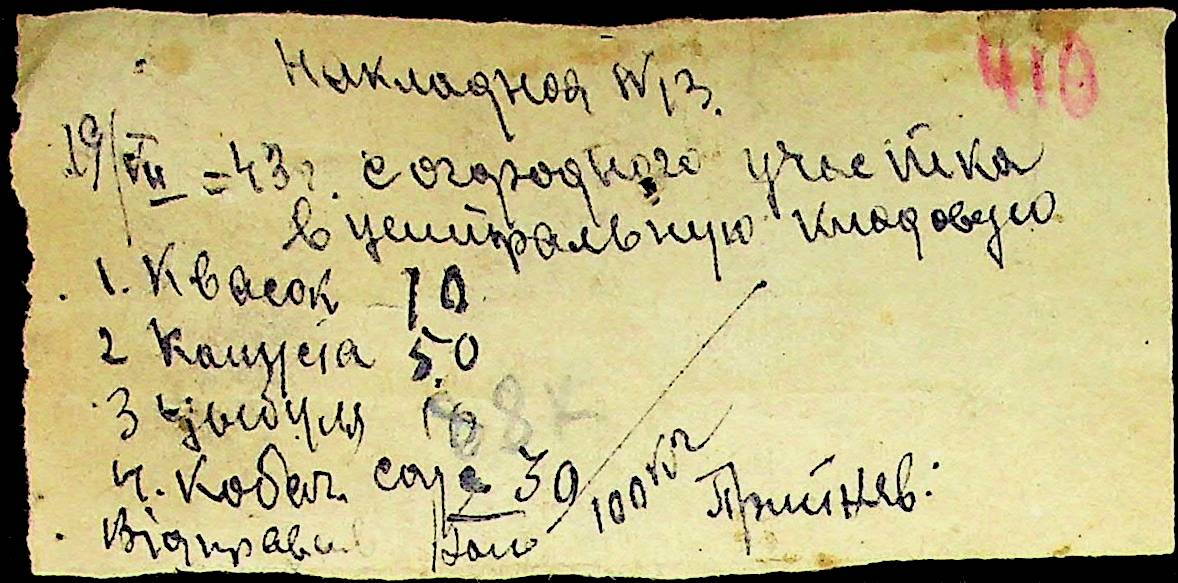 410
Накладная №13.
19/VII = 43 г. с огородного участка
в центральную кладовую
1. Квасок 10
2 Капуста 50
3 Цыбуля 10
4. Кабач. 30
Відправив 100 кг Прийняв: